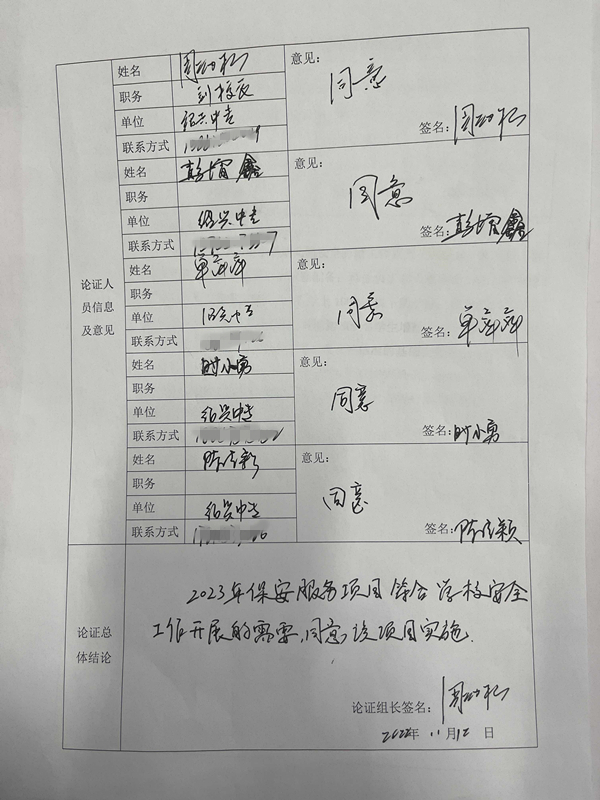 姓名
意见：
同意
职务
副校长
单位
绍兴中专
联系方式
签名：
姓名
职务
意见：
同意
单位
绍兴中专
联系方式
签名：
姓名
意见：
职务
同意
单位
绍兴中专
联系方式
签名：
论证人
员信息
及意见
姓名 时小勇
意见：
职务
同意
单位
绍兴中专
联系方式
签名：时小勇
姓名
意见：
职务
同意
单位
绍兴中专
联系方式
签名：
论证总
体结论
2023年保安服务项目符合学校安全
工作开展的需要，同意该项目实施.
论证组长签名：
2022年 11月12日